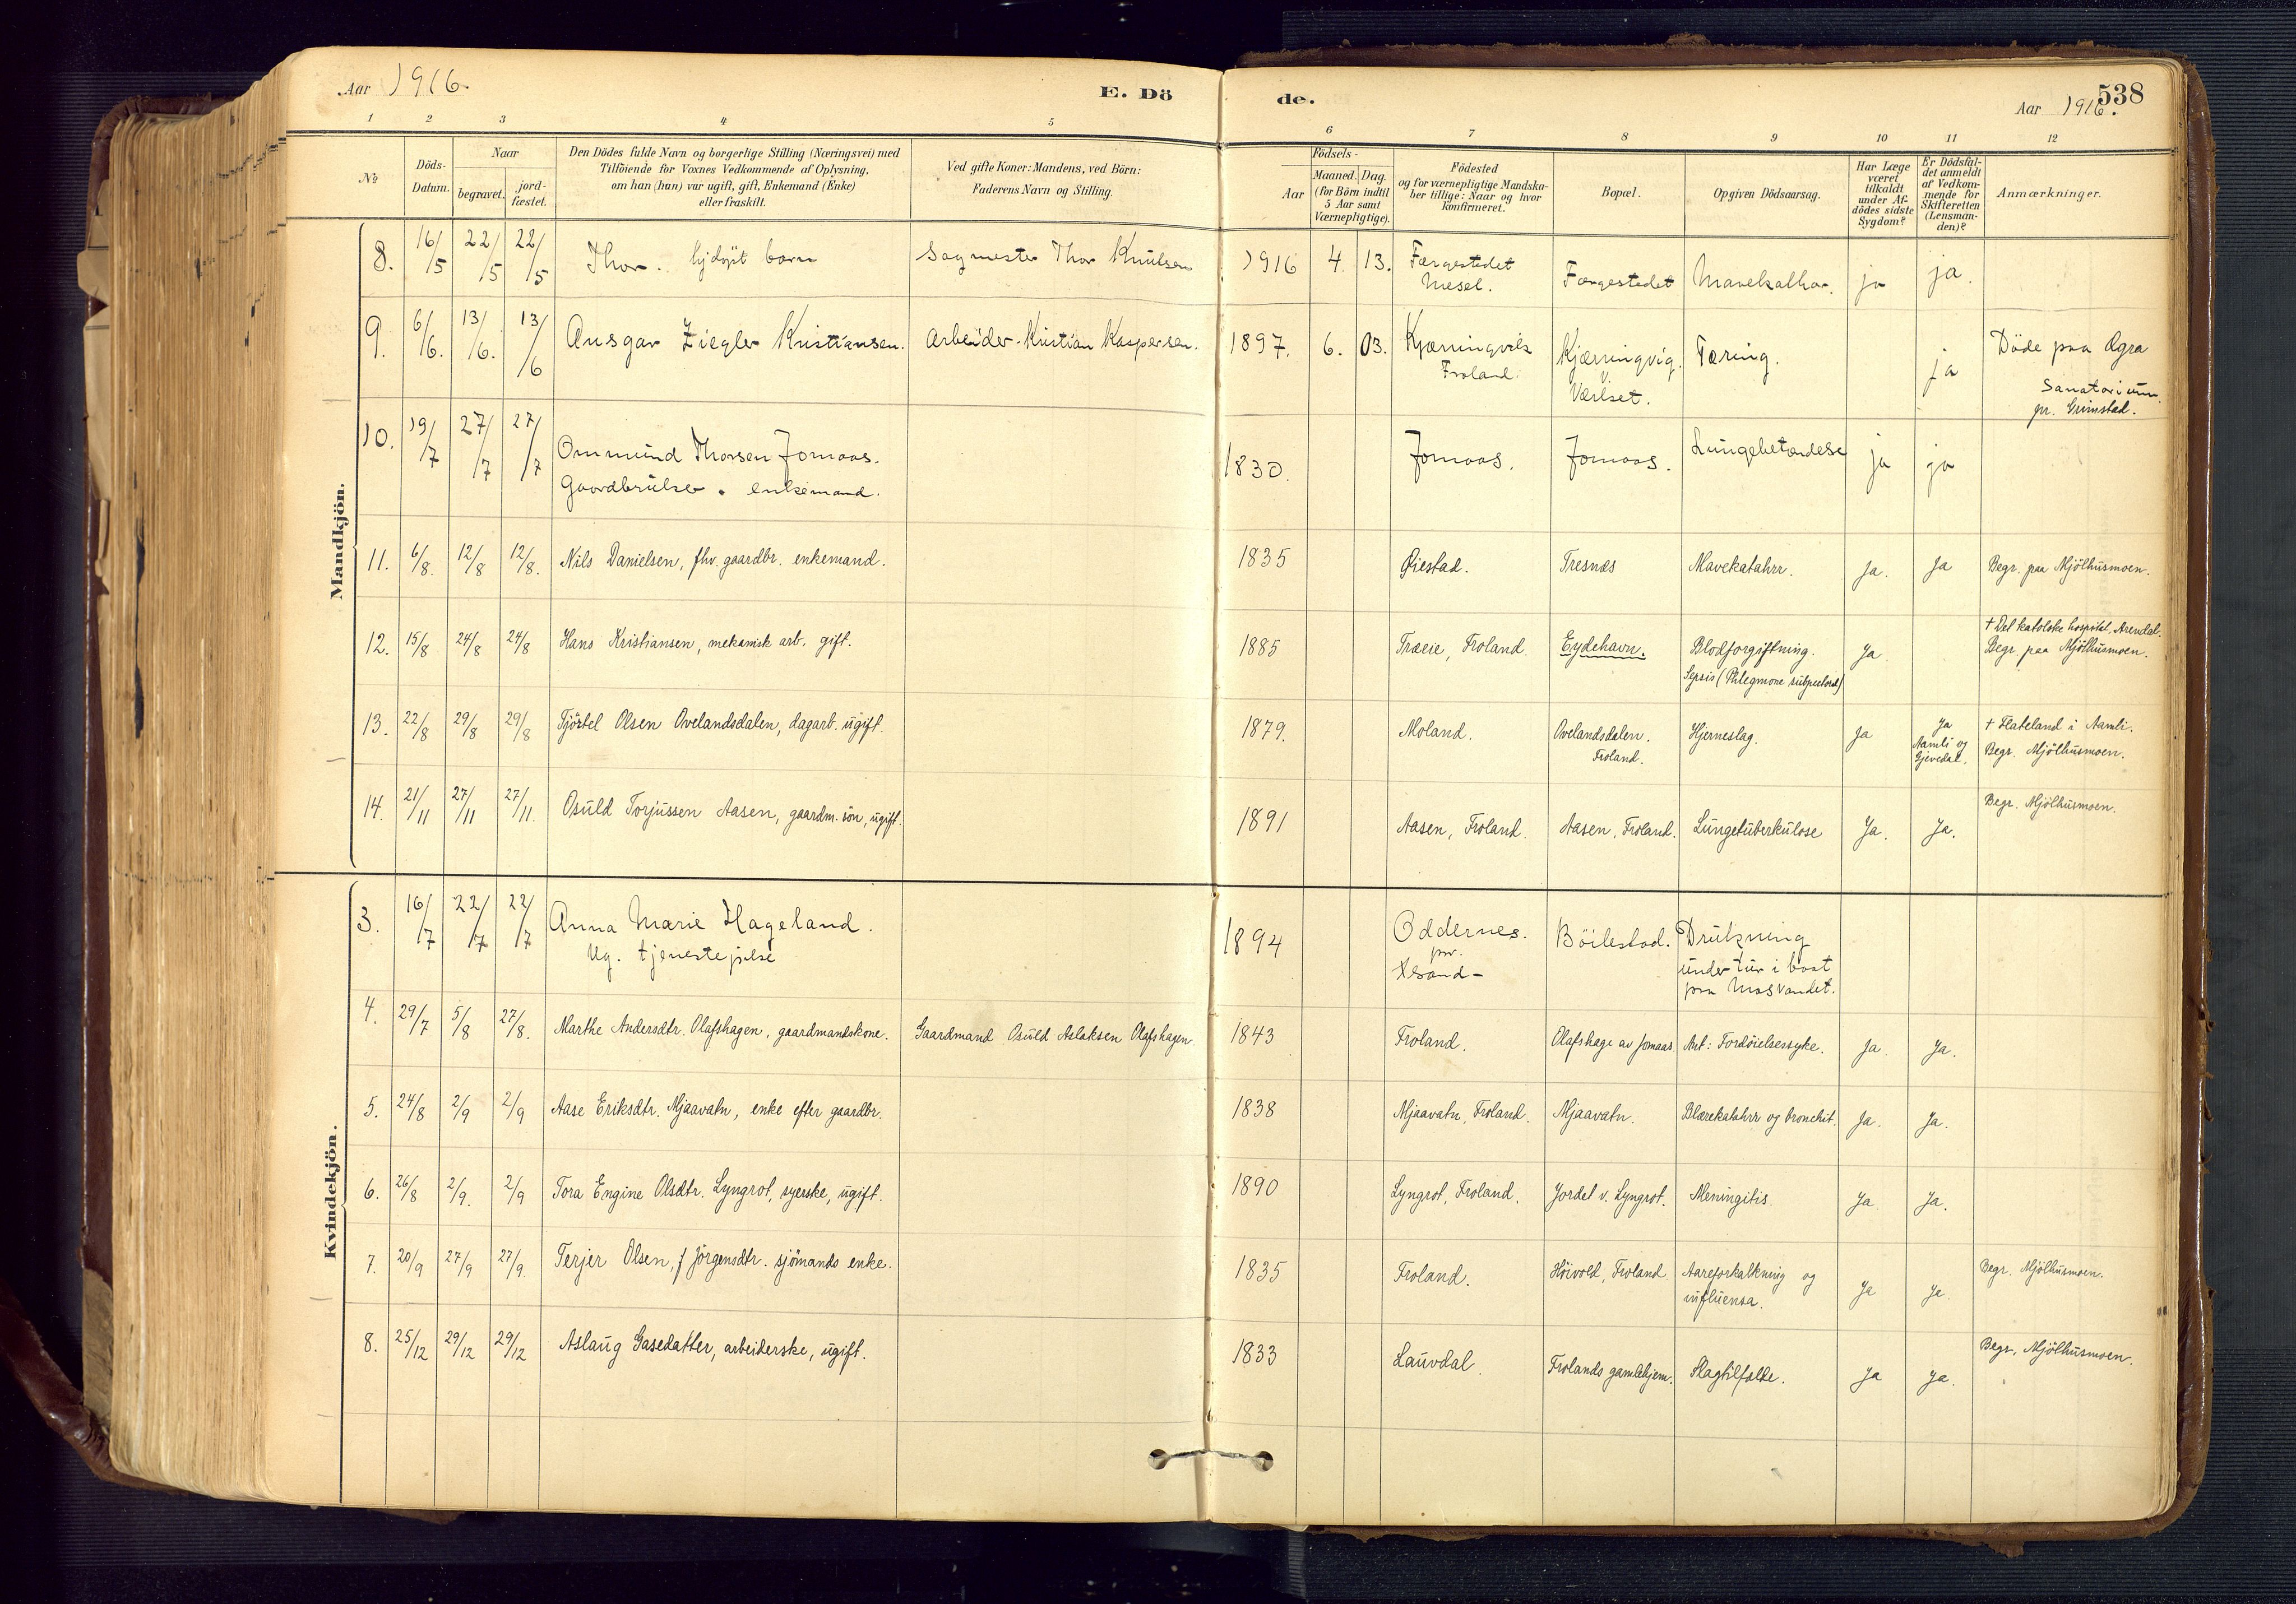 Aar 1916.
E. Dö
de.
Aar 1916.
538
1 2 3 4 5 6 7 8 9 10 11 12
No
Döds-Datum.
Naar
begravet.
jord-fæstet.
Den Dödes fulde Navn og borgerlige Stilling (Næringsvei) med
Tilföiende for Voxnes Vedkommende af Oplysning,
om han (hun) var ugift, gift, Enkemand (Enke)
eller fraskilt.
Ved gifte Koner: Mandens, ved Börn:
Faderens Navn og Stilling.
Födsels-
Aar
Maaned. Dag.
(for Börn indtil
5 Aar samt
Værnepligtige).
Födested
og for værnepligtige Mandska-
ber tillige: Naar og hvor
konfirmeret.
Bopæl.
Opgiven Dödsaarsag.
Har Læge
været
tilkaldt
under Af-
dödes sidste
Sygdom?
Er Dödsfal-
det anmeldt
af Vedkom-
mende for
Skifteretten
(Lensman-
den)?
Anmærkninger.
Mandkjön.
8. 16/5 22/5 22/5 Thor. barn Sagmester Thor Knutsen 1916 4. 13. Færgestedet
Mesel. Færgestedet Mavekathar. ja ja.
9. 6/6. 13/6. 13/6 Ansgar Ziegler Kristiansen. Arbeider Kristian Kaspersen. 1897. 6. 03. Kjærringvik
Froland. Kjærringvig.
v.
Værlset. Tæring. ja Döde paa Agra
Sanatorium.
pr. Grimstad.
10. 19/7 27/7 27/7 Ommund Thorsen Jomaas.
Gaardbruker. enkemand. 1830. Jomaas. Jomaas. Lungebetændelse ja ja
11. 6/8. 12/8 12/8. Nils Danielsen, fhv. gaardbr. enkemand. 1835 Øiestad. Tresnæs Mavekatahrr. Ja. Ja Begr. paa Mjölhusmoen.
12. 15/8 24/8 24/8 Hans Kristiansen, mekanisk arb. gift. 1885 Træeie, Froland. Eydehavn. Blodforgiftning.
Sepsis (Phlegmone subpectoral) Ja † Det katolske hospital, Arendal.
Begr. paa Mjölhusmoen.
13. 22/8 29/8 29/8 Tjöstel Olsen Ovelandsdalen, dagarb. ugift. 1879. Moland. Ovelandsdalen.
Froland. Hjerneslag. Ja Ja
Aamli og
Gjevedal. † Flateland i Aamli.
Begr. Mjölhusmoen.
14. 21/11 27/11 27/11. Osuld Torjussen Aasen, gaardm. sön, ugift. 1891 Aasen, Froland. Aasen, Froland. Lungetuberkulose Ja. Ja. Begr. Mjölhusmoen.
Kvindekjön.
3. 16/7 22/7 22/7 Anna Marie Hageland.
Ug. tjenestepike 1894 Oddernes.
pr.
Xsand- Böilestad. Drukning
under tur i baat
paa Masvandet.
4. 29/7 5/8 27/8. Marthe Andersdtr. Olafshagen, gaardmandskone. Gaardmand Osuld Aslaksen Olafshagen. 1843 Froland. Olafshage av Jomaas Ant: Fordöielsessyke. Ja Ja.
5. 24/8 2/9 2/9 Aase Eriksdtr. Mjaavatn, enke efter gaardbr. 1838 Mjaavatn, Froland. Mjaavatn. Blærekatahrr og bronchit. Ja. Ja.
6. 26/8 2/9. 2/9 Tora Engine Olsdtr. Lyngrot, syerske, ugift. 1890 Lyngrot, Froland. Jordet v. Lyngrot. Meningitis. Ja Ja.
7. 20/9 27/9 27/9. Terjer Olsen, f. Jörgensdtr. sjömands enke. 1835 Froland. Höivold, Froland. Aareforkalkning og
influensa. Ja Ja. Begr. Mjölhusmoen.
8. 25/12 29/12 29/12 Aslaug Gasedatter, arbeiderske, ugift. 1833 Lauvdal. Frolands gamlehjem. Slagtilfælde. Ja Ja. Begr. Mjölhusmoen.